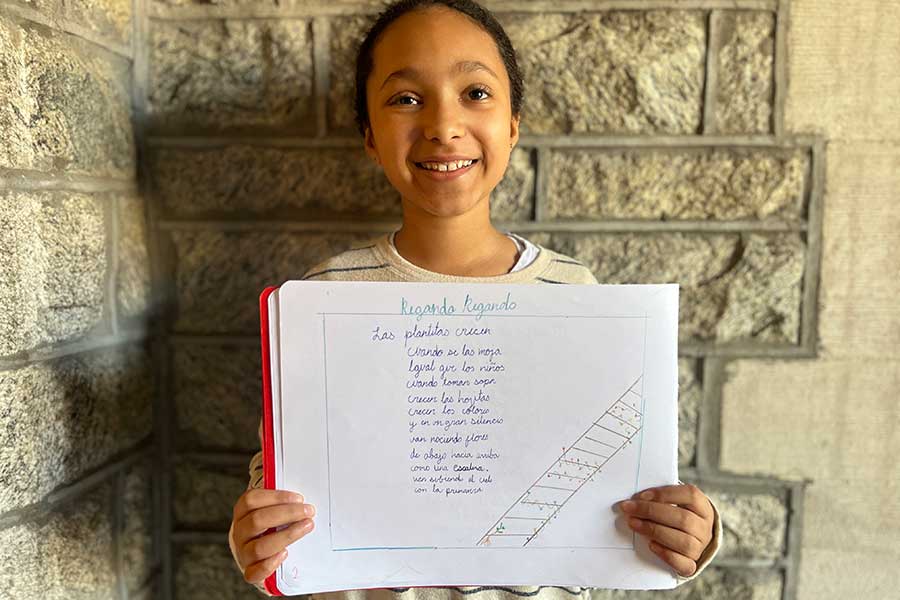 Regando Regando
Las plantitas crecen
cuando se las moja
Igual que los niños
cuando toman sopa
crecen las hojitas
crecen los colores
y en un gran silencio
van naciendo flores
de abajo hacia arriba
como una escalera.
ven subiendo el cielo
con la primavera
2